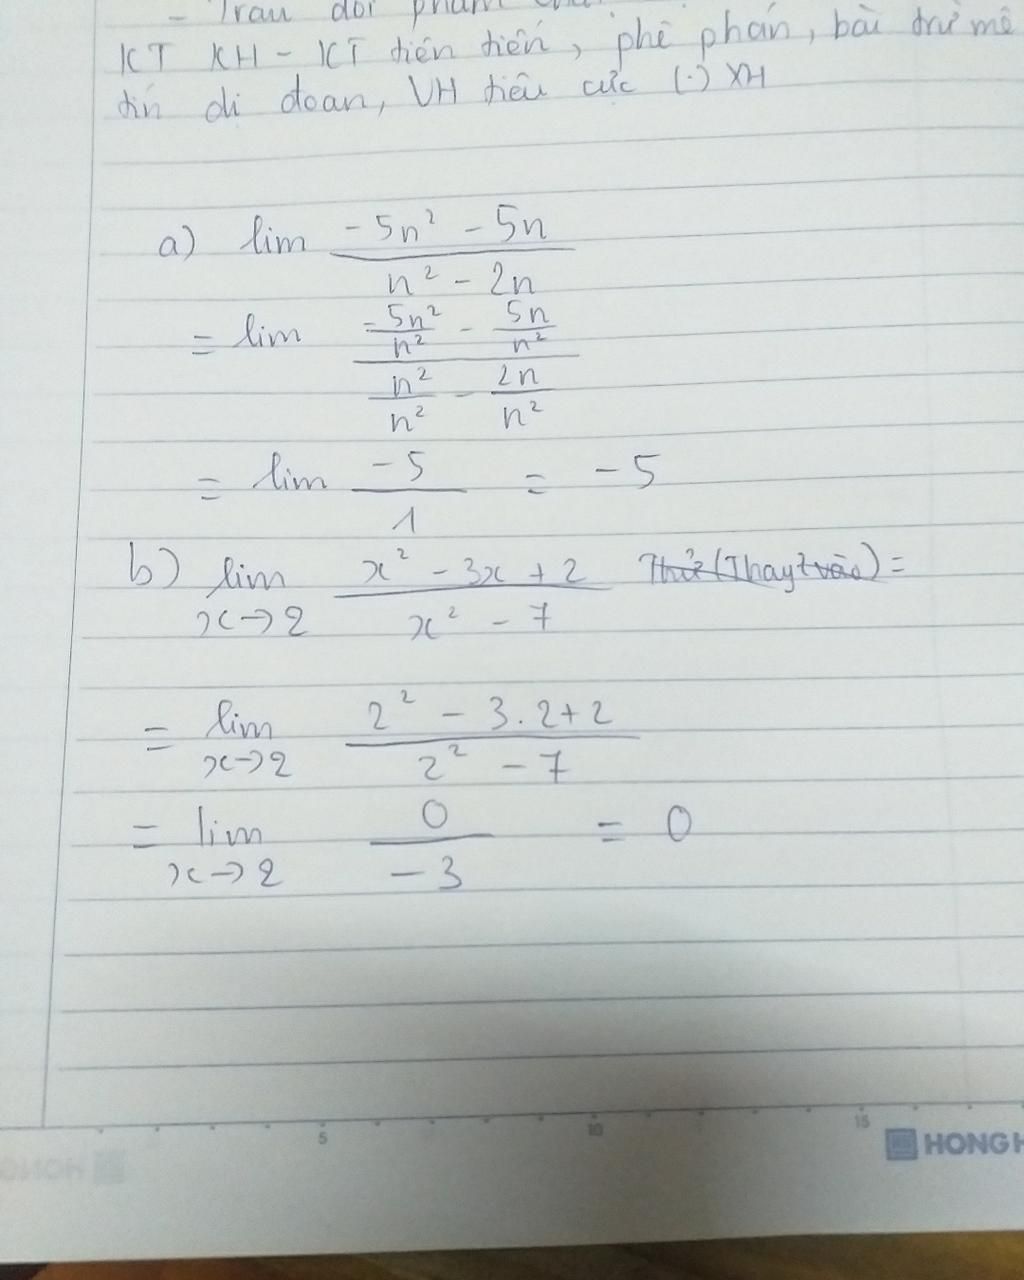 - Trau dồi phẩm
KT KH - KT tiên tiến, phê phán, bài trừ mê
tín dị đoan, VH tiêu cực (.) XH
a) lim (-5n² - 5n)/(n² - 2n)
= lim (-5n²/n² - 5n/n²)/(n²/n² - 2n/n²)
= lim -5/1 = -5
b) lim x→2 (x² - 3x + 2)/(x² - 7) Thử (Thay 2 vào) =
= lim x→2 (2² - 3.2+2)/(2² - 7)
= lim x→2 0/-3 = 0
5 10 15
HONG H